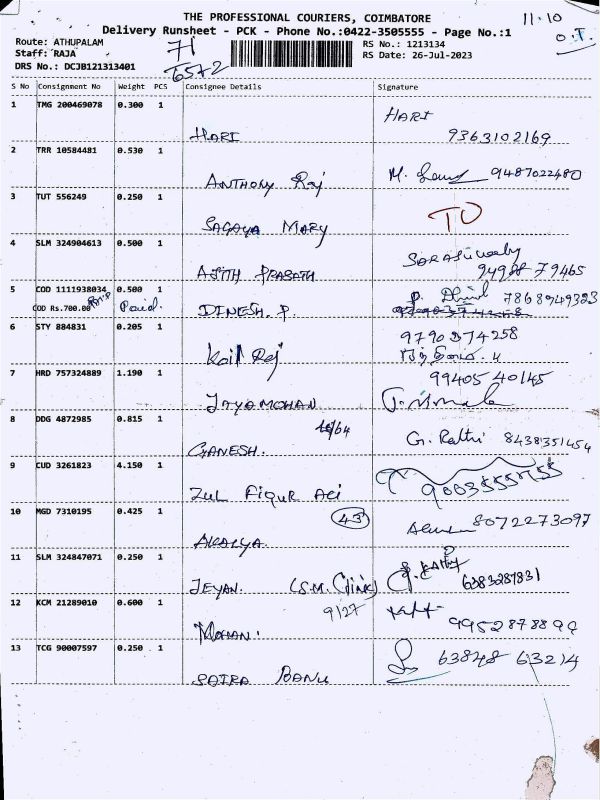 THE PROFESSIONAL COURIERS, COIMBATORE
11.10
Delivery Runsheet - PCK - Phone No.:0422-3505555 - Page No.:1
O.T.
Route: ATHUPALAM
71
RS No.: 1213134
Staff: RAJA
RS Date: 26-Jul-2023
DRS No.: DCJB121313401
6572
S No Consignment No Weight PCS Consignee Details Signature
1 TMG 200469078 0.300 1 HARI HARI
9363102169
2 TRR 10584481 0.530 1 ANTHONY Raj M. 9487022480
3 TUT 556249 0.250 1 SAGAYA MARY TO
4 SLM 324904613 0.500 1 AJITH PRASATH
94988 79465
5 COD 1111938034 0.500 1 DINESH. P. P. 7868949323
COD Rs.700.00 Paid.
6 STY 884831 0.205 1 Kail Raj 9790374258
7 HRD 757324889 1.190 1 JAYAMOHAN 99405 40145
8 DDG 4872985 0.815 1 GANESH. G. Rathi 8438351454
9 CUD 3261823 4.150 1 ZUL FIQUR ALI 9003555755
10 MGD 7310195 0.425 1 AKALYA 43 8072273097
11 SLM 324847071 0.250 1 JEYAN. (S.M. Clinic) 6383287831
12 KCM 21289010 0.600 1 MOHAN. 9/27
9952878899
13 TCG 90007597 0.250 1 SAIRA BANU 63848 63214